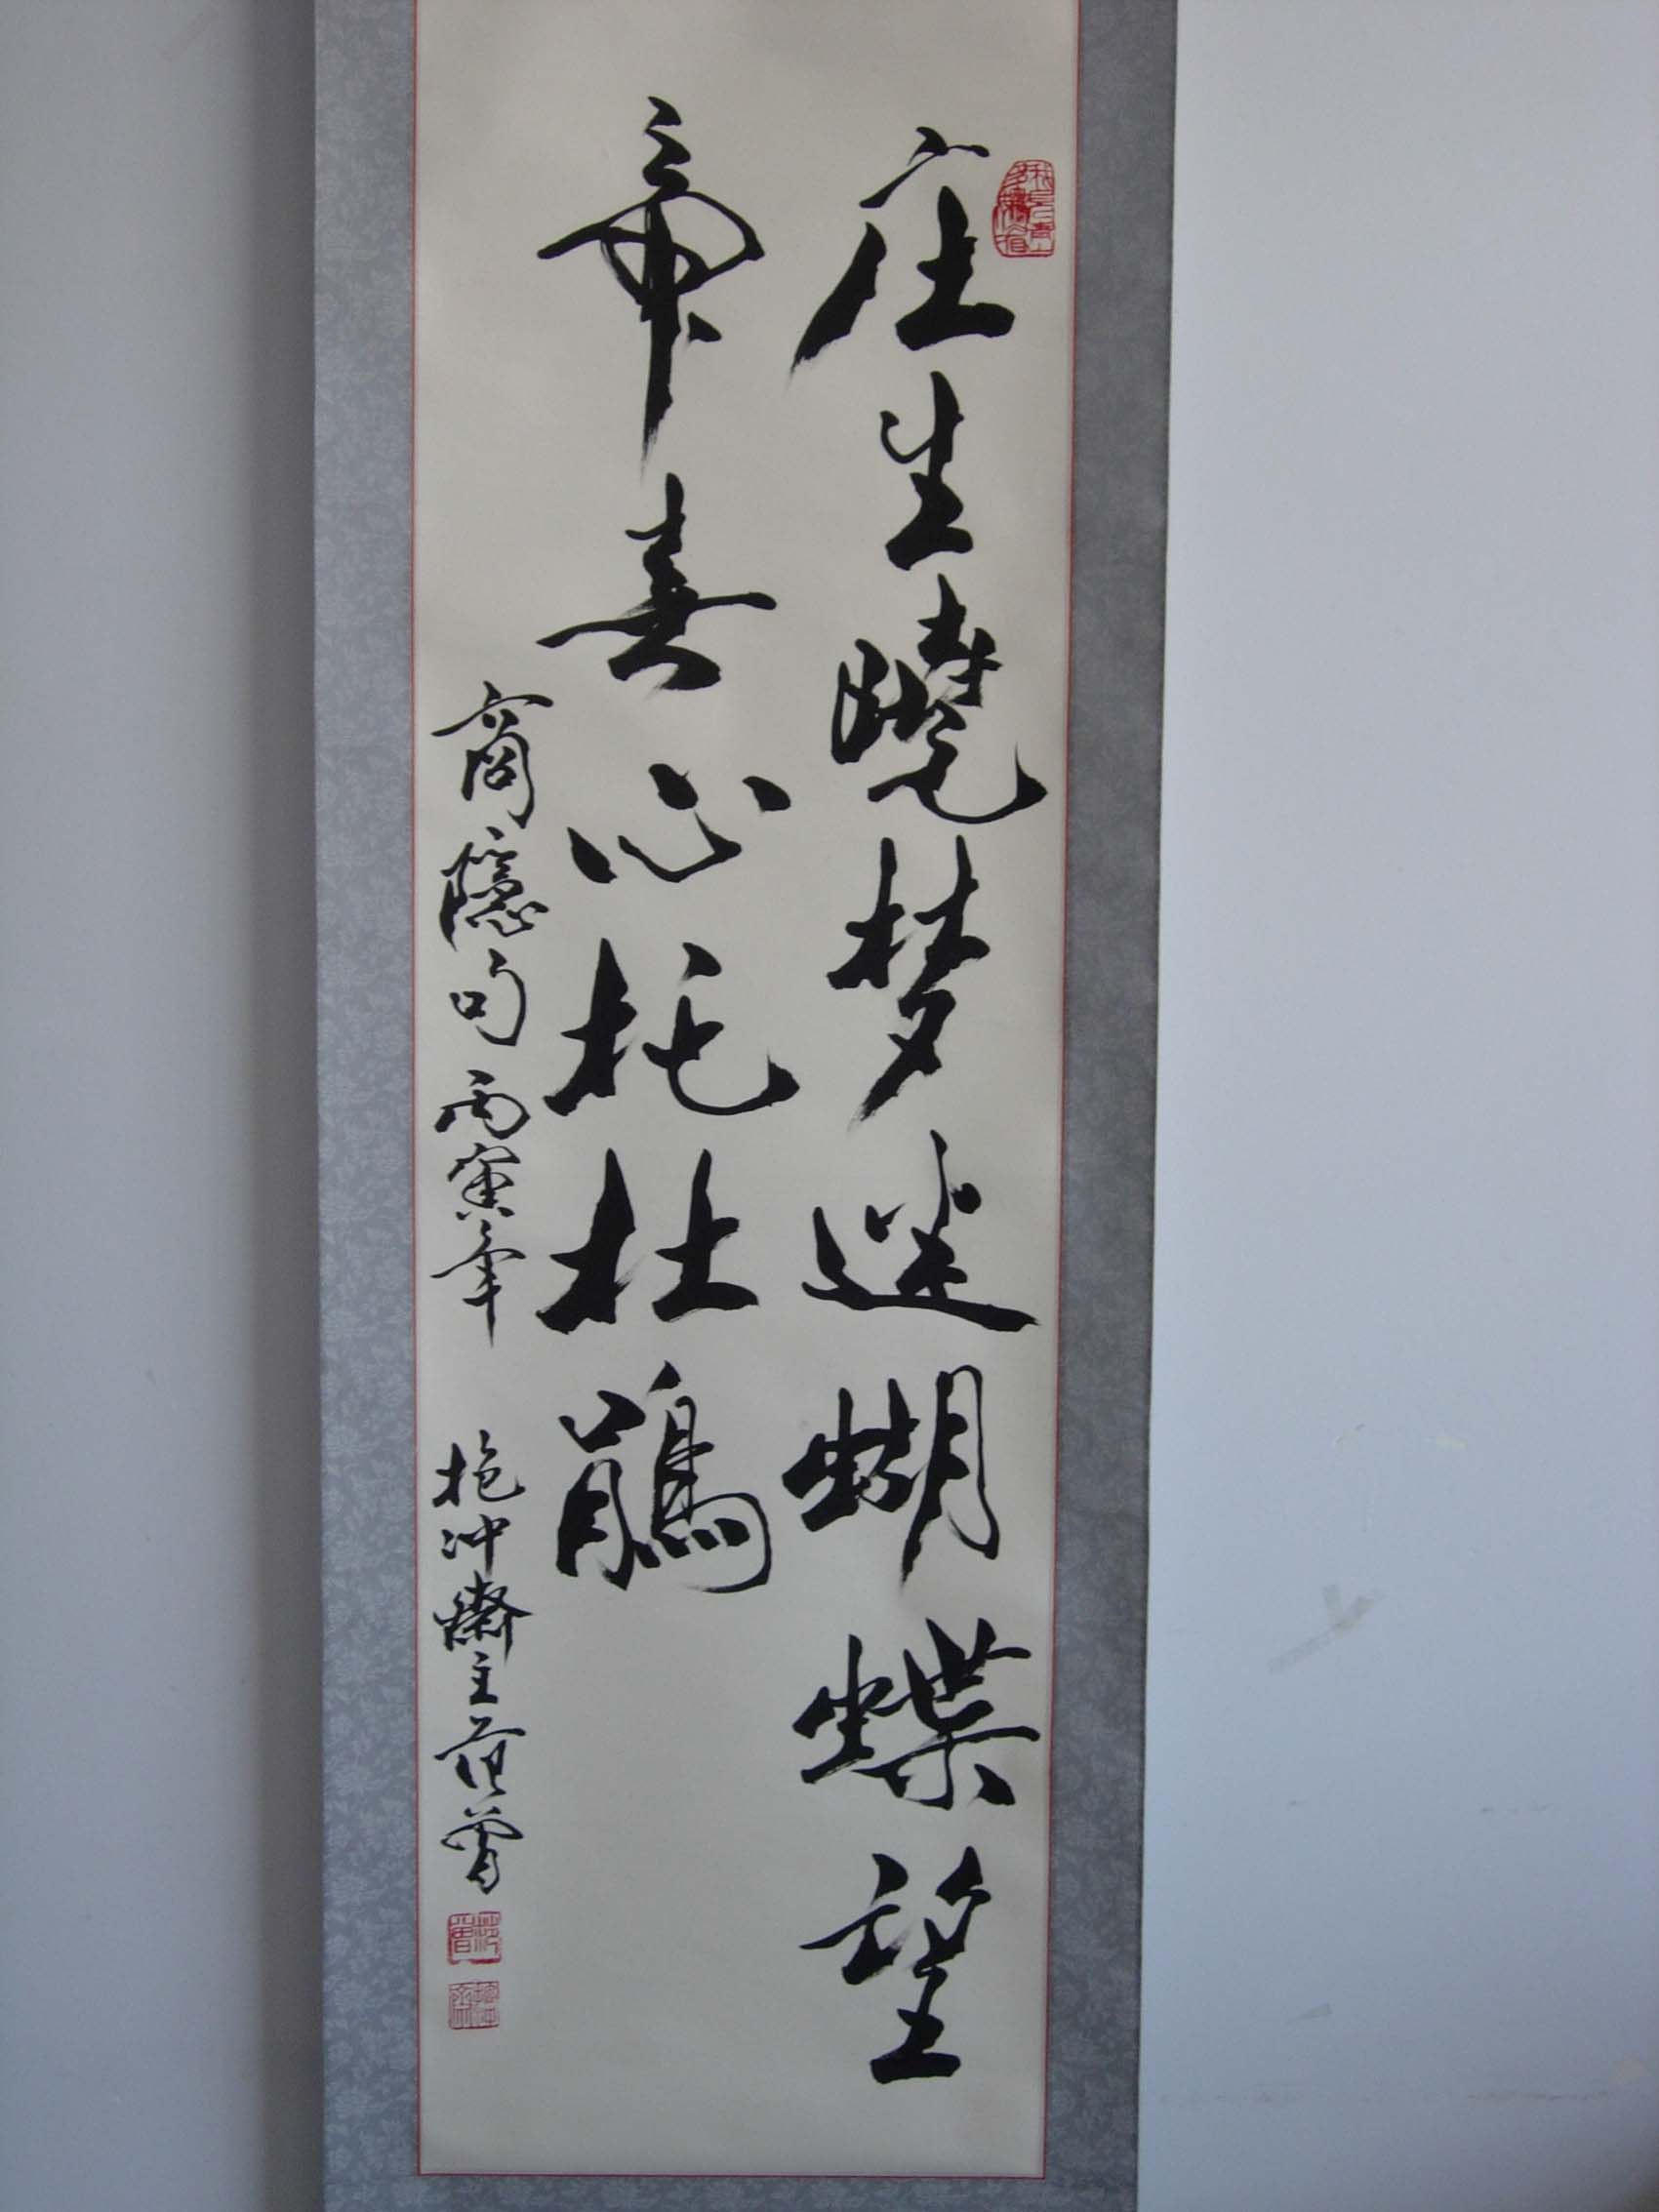 庄生曉梦迷蝴蝶望
帝春心托杜鹃
商隱句丙寅年 抱冲齋主范曾